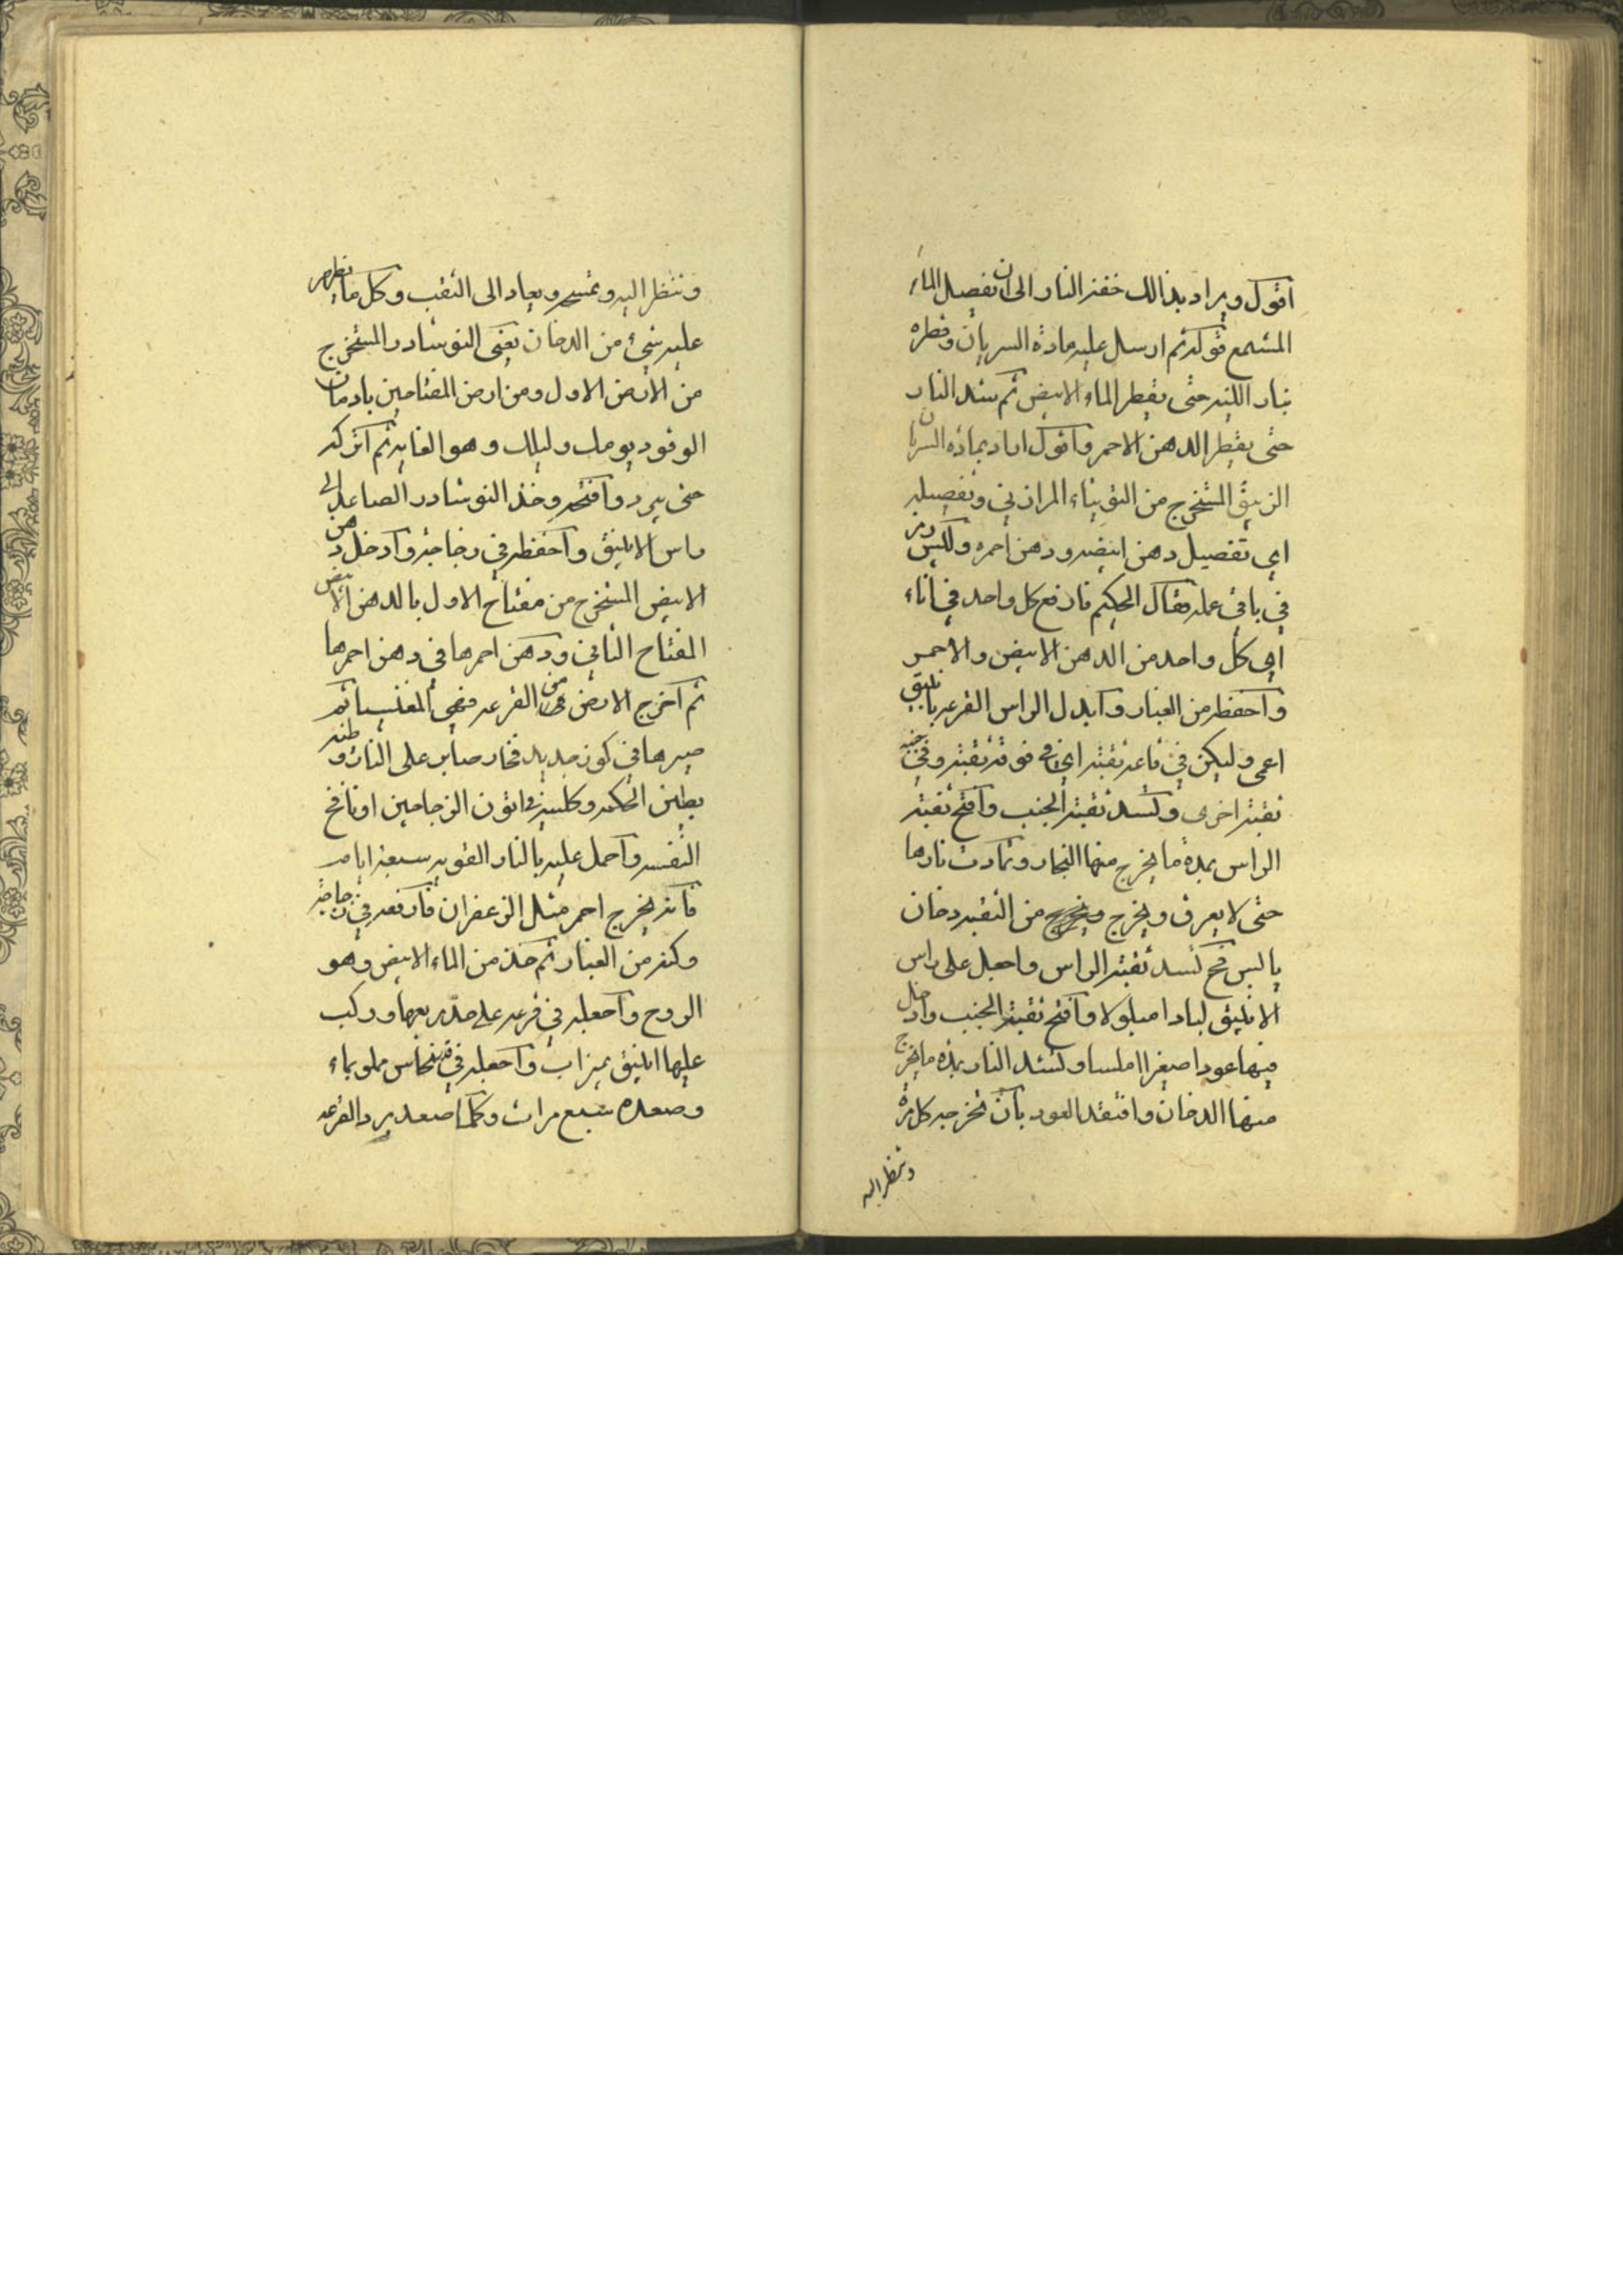 اقول ويراد بذالك خفة النار الى ان تفصيل الماء
المشمع قوله ثم ارسل عليه مادة السريان وقطره
بنار اللينه حتى يقطر الماء الابيض ثم شد النار
حتى يقطر الدهن الاحمر واقول اراد بمادة السريان
الزيبق المستخرج من التوتياء المرازبي وتفصيله
اي تفصيل دهن ابيضه ودهن احمره
في باقي عمله فقال الحكيم فارفع كل واحد في اناء
اي كل واحد من الدهن الابيض والاحمر
واحفظه من الغبار وابدل الراس القرعه بانبيق
اعمى وليكن في قاعه ثقبه اي في فوقه ثقبه وفي جنبه
ثقبة اخرى وتسد ثقبة الجنب وافتح ثقبة
الراس بمدة ما يخرج منها البخار وتمادت نارها
حتى لا يعرق ويخرج من الثقبه دخان
يابس فح تسد ثقبة الراس واجعل على راس
الانبيق لبادا مبلولا وافتح ثقبة الجنب وادخل
فيها عودا صغيرا املسا وتشد النار بمدة ما يخرج
منها الدخان وافتقد العود بان تخرجه كل مرة
وتنظر اليه
وتنظر اليه وتمسحه ويعاد الى الثقب وكل ما يظهر
عليه شيء من الدخان يعنى النوشادر المستخرج
من الارض الاول ومن ارض المفتاحين بادمان
الوقود يومك وليلك وهو الغايه ثم اتركه
حتى يبرد وافتحه وخذ النوشادر الصاعد الى
راس الانبيق واحفظه في زجاجة وادخل دهن
الابيض المستخرج من مفتاح الاول بالدهن الابيض
المفتاح الثاني ودهن احمرها في دهن احمرها
ثم اخرج الارض من القرعه فهي المغنيسيا ثم
صيرها في كوز جديد فخار صابر على النار وطينه
بطين الحكمه وكلسه في اتون الزجاجين او نافخ
النفسه واحمل عليه بالنار القويه سبعة ايام
فانه يخرج احمر مثل الزعفران فارفعه في زجاجة
وكنه من الغبار ثم خذ من الماء الابيض وهو
الروح واجعله في قرعه على حد ربعها وركب
عليها انبيق بميزاب واجعله في نحاس مملو بماء
وصعده سبع مرات وكلما صعد يرد القرعه